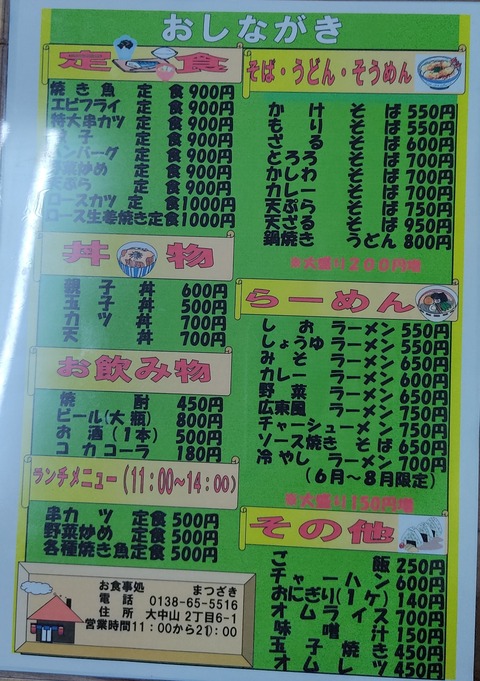 おしながき
定食
焼き魚 定食 900円
エビフライ 定食 900円
特大串カツ 定食 900円
子 定食 900円
ンバーグ 定食 900円
野菜炒め 定食 900円
天ぷら 定食 900円
ロースカツ 定食 1000円
ロース生姜焼き定食 1000円
丼物
親子丼 600円
玉子丼 500円
カツ丼 700円
天丼 700円
お飲み物
焼酎 450円
ビール(大瓶) 800円
お酒(1本) 500円
コカコーラ 180円
ランチメニュー(11:00~14:00)
串カツ 定食 500円
野菜炒め 定食 500円
各種焼き魚定食 500円
お食事処 まつざき
電話 0138-65-5516
住所 大中山2丁目6-1
営業時間11:00から21:00
そば・うどん・そうめん
かけそば 550円
もりそば 550円
ざるそば 600円
とろろそば 700円
かしわそば 700円
カレーそば 700円
天ぷらそば 750円
天ざるそば 950円
鍋焼きうどん 800円
※大盛り200円増
らーめん
しおラーメン 550円
しょうゆラーメン 550円
みそラーメン 650円
カレーラーメン 600円
野菜ラーメン 650円
広東風ラーメン 750円
チャーシューメン 750円
ソース焼きそば 650円
冷やしラーメン 700円
(6月~8月限定)
※大盛り150円増
その他
ご飯 250円
チャーハン 600円
おにぎり(ケ) 140円
オムライス 700円
味噌汁 150円
玉子焼き 450円
オムレツ 450円